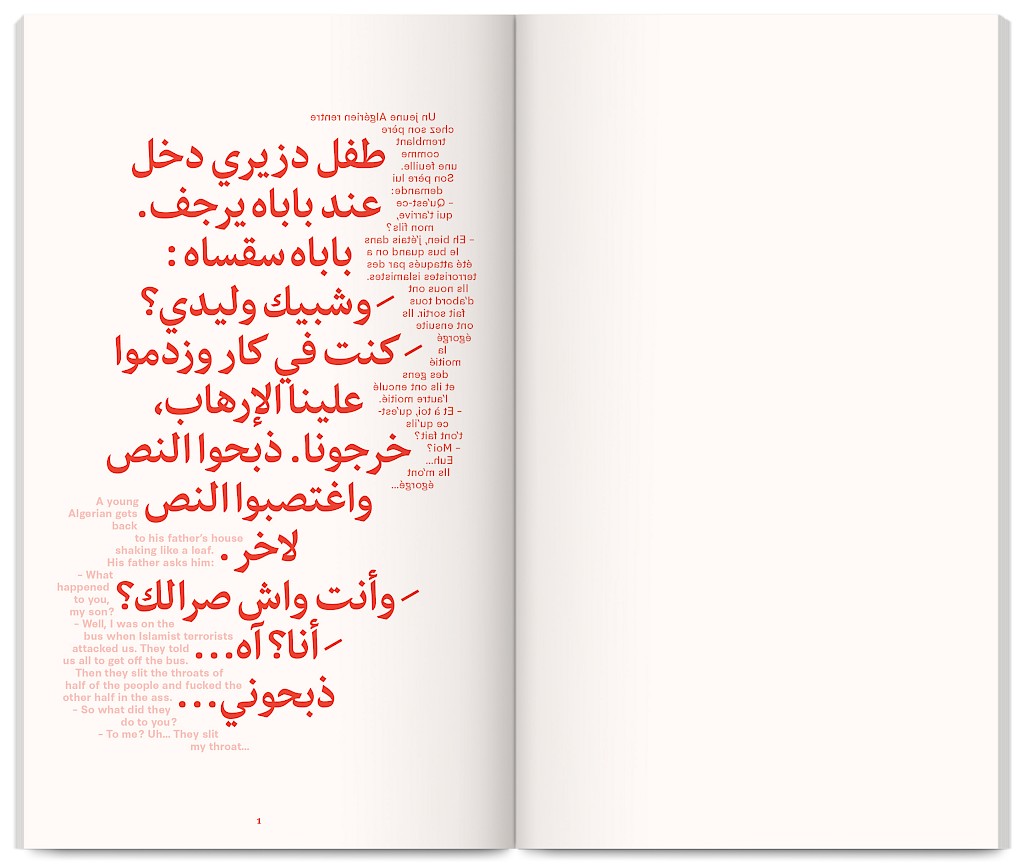 Un jeune Algérien rentre
chez son père
tremblant
comme
une feuille.
Son père lui
demande:
– Qu'est-ce
qui t'arrive,
mon fils?
– Eh bien, j'étais dans
le bus quand on a
été attaqués par des
terroristes islamistes.
Ils nous ont
d'abord tous
fait sortir. Ils
ont ensuite
égorgé
la
moitié
des gens
et ils ont enculé
l'autre moitié.
– Et à toi, qu'est-
ce qu'ils
t'ont fait?
– Moi?
Euh...
Ils m'ont
égorgé...
طفل دزيري دخل
عند باباه يرجف.
باباه سقساه :
– وشبيك وليدي؟
– كنت في كار وزدموا
علينا الإرهاب،
خرجونا. ذبحوا النص
واغتصبوا النص
لاخر .
– وأنت واش صرالك؟
– أنا؟ آه...
ذبحوني...
A young
Algerian gets
back
to his father's house
shaking like a leaf.
His father asks him:
– What
happened
to you,
my son?
– Well, I was on the
bus when Islamist terrorists
attacked us. They told
us all to get off the bus.
Then they slit the throats of
half of the people and fucked the
other half in the ass.
– So what did they
do to you?
– To me? Uh... They slit
my throat...
1